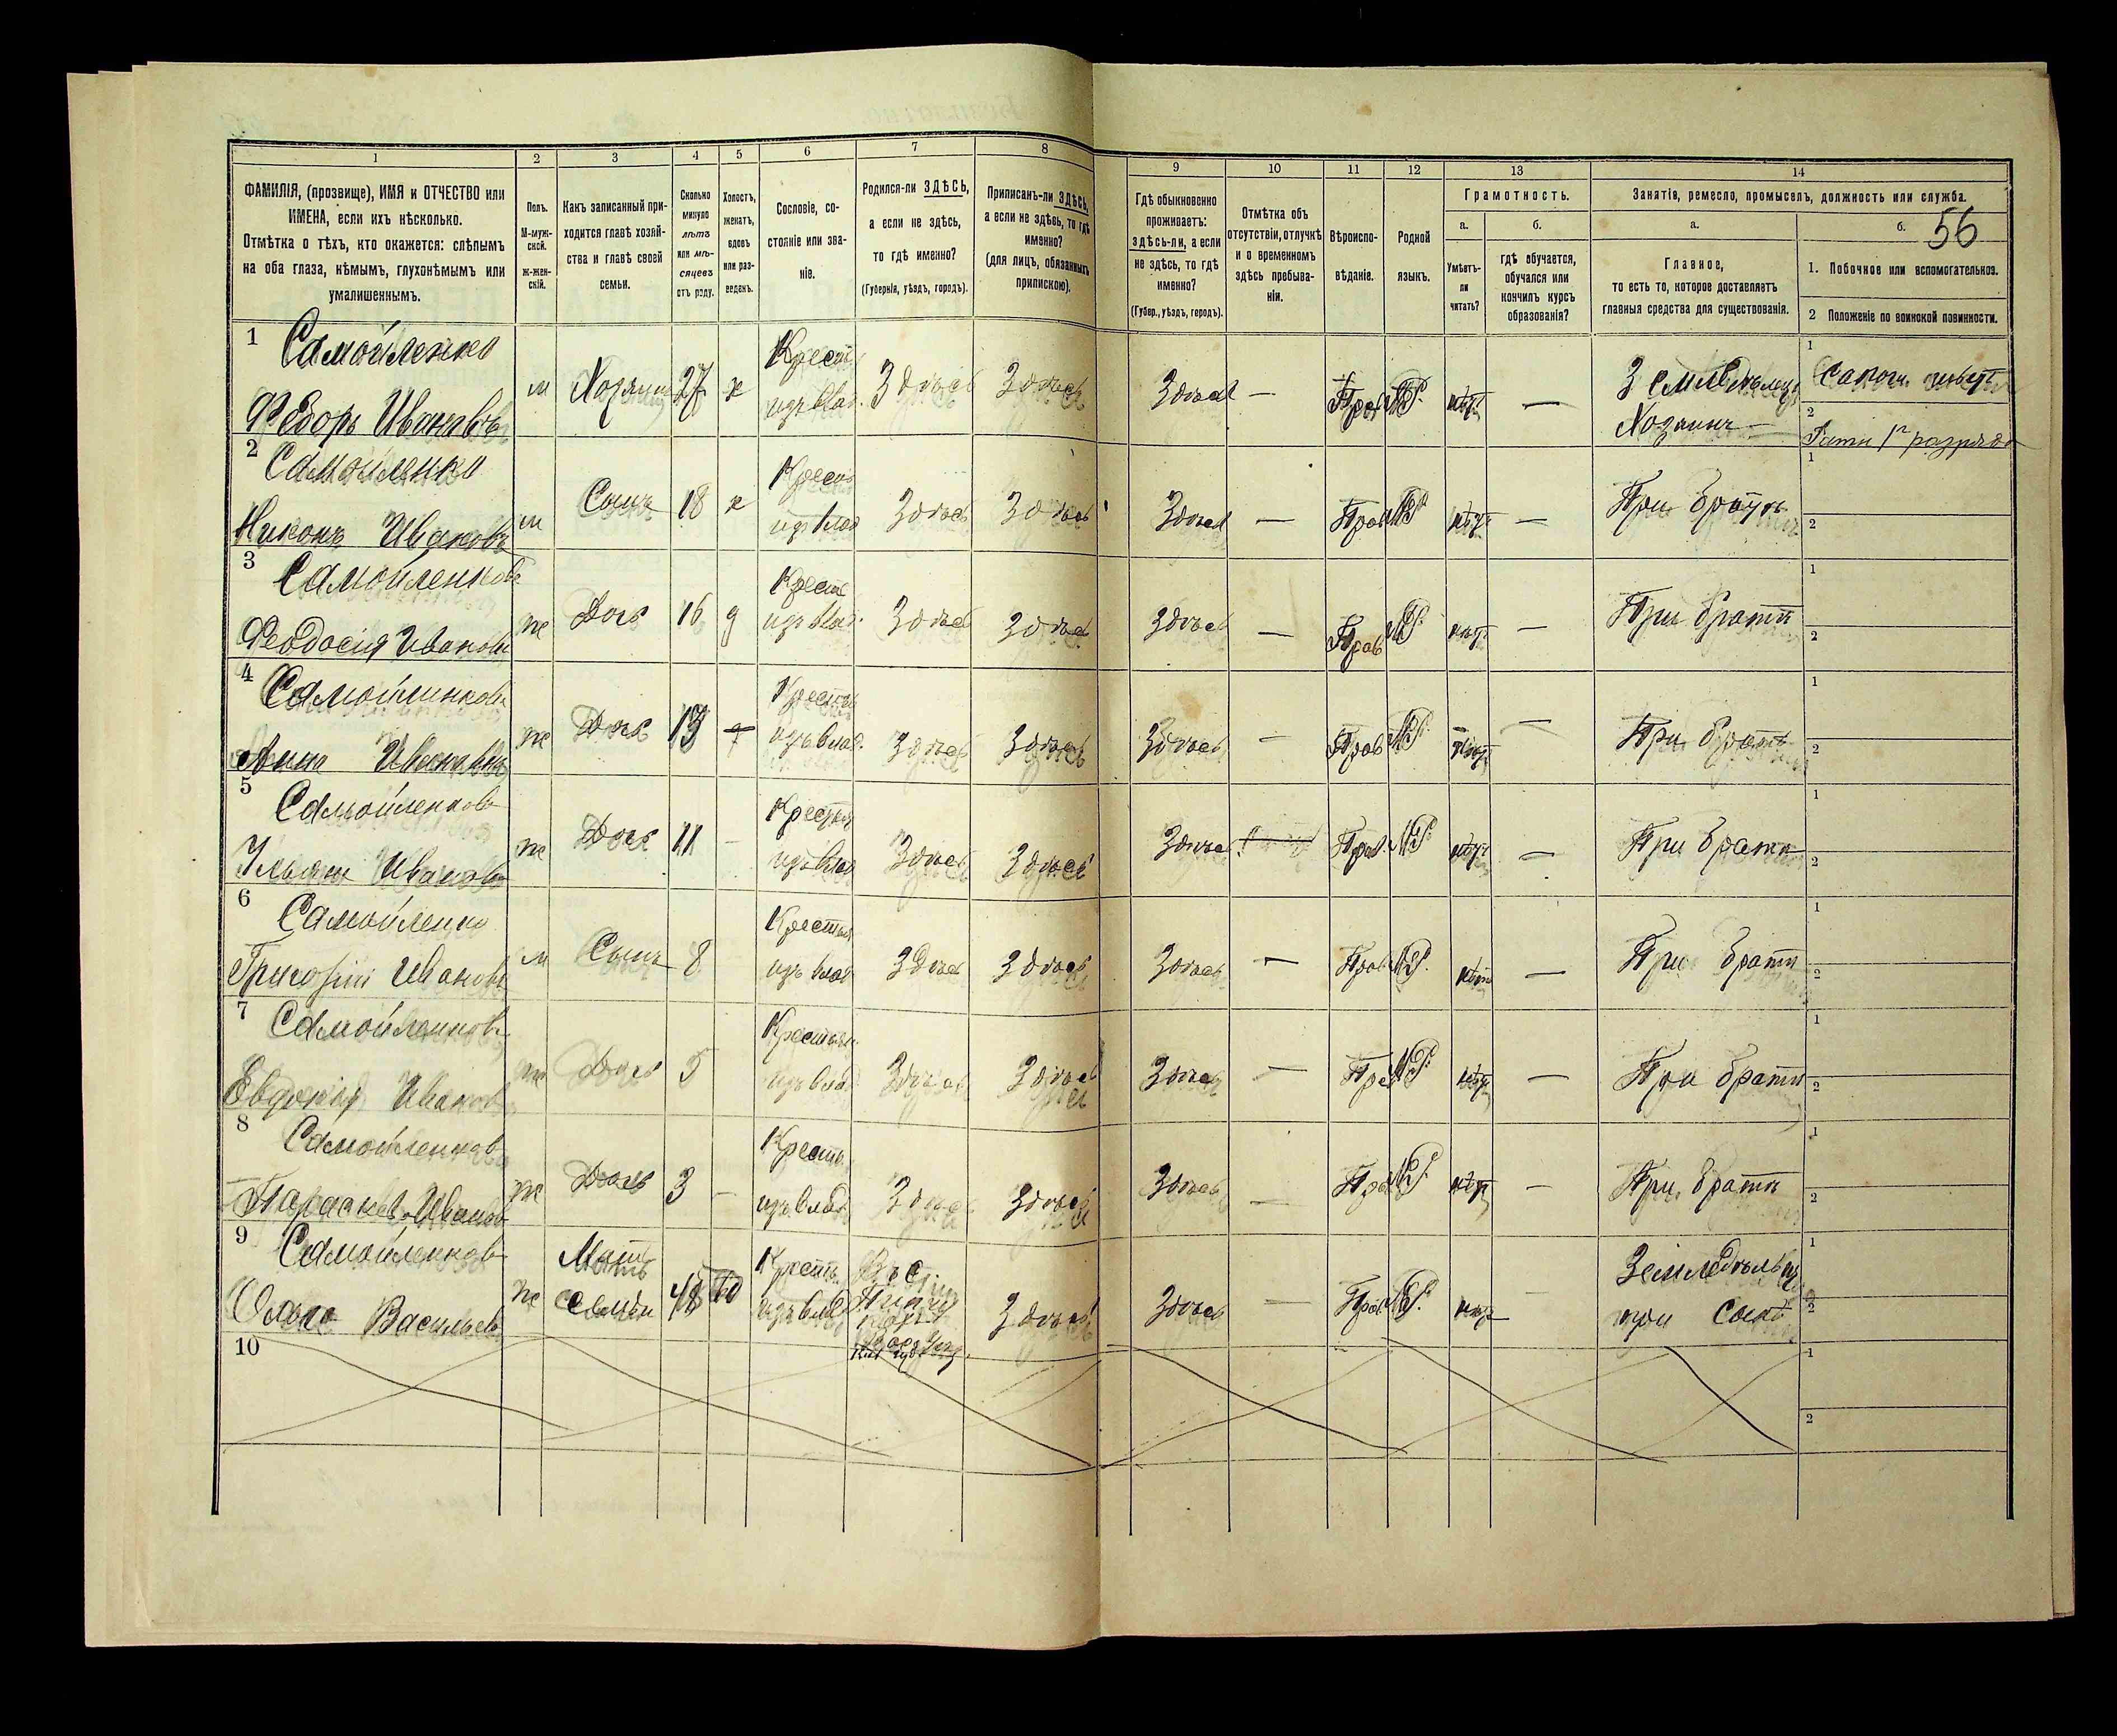 1 2 3 4 5 6 7 8 9 10 11 12 13 14
ФАМИЛІЯ, (прозвище), ИМЯ и ОТЧЕСТВО или
ИМЕНА, если ихъ нѣсколько.
Отмѣтка о тѣхъ, кто окажется: слѣпымъ
на оба глаза, нѣмымъ, глухонѣмымъ или
умалишеннымъ.
Полъ.
М-муж-
ской.
ж-жен-
скій.
Какъ записанный при-
ходится главѣ хозяй-
ства и главѣ своей
семьи.
Сколько
минуло
лѣтъ
или мѣ-
сяцевъ
отъ роду.
Холостъ,
женатъ,
вдовъ
или раз-
веденъ.
Сословіе, со-
стояніе или зва-
ніе.
Родился-ли ЗДѢСЬ,
а если не здѣсь,
то гдѣ именно?
(Губернія, уѣздъ, городъ).
Приписанъ-ли ЗДѢСЬ,
а если не здѣсь, то гдѣ
именно?
(для лицъ, обязанныхъ
припискою).
Гдѣ обыкновенно
проживаетъ:
здѣсь-ли, а если
не здѣсь, то гдѣ
именно?
(Губер., уѣздъ, городъ).
Отмѣтка объ
отсутствіи, отлучкѣ
и о временномъ
здѣсь пребыва-
ніи.
Вѣроиспо-
вѣданіе.
Родной
языкъ.
Грамотность.
а.
Умѣетъ-
ли
читать?
б.
гдѣ обучается,
обучался или
кончилъ курсъ
образованія?
Занятія, ремесло, промыселъ, должность или служба.
а.
Главное,
то есть то, которое доставляетъ
главныя средства для существованія.
б.
56
1. Побочное или вспомогательное.
2 Положеніе по воинской повинности.
1 Самойленко
Федоръ Ивановъ
м Хозяинъ 27 х Крест. изъ влад. Здѣсь Здѣсь Здѣсь — Прав М.Р. нѣтъ —
Земледѣлецъ
Хозяинъ
1
2
разряда
2 Самойленко
Никонъ Ивановъ
м Сынъ 18 х Крест изъ влад Здѣсь Здѣсь Здѣсь — Прав М.Р. нѣтъ — При братѣ
1
2
3 Самойленкова
Феодосія Иванов
ж Дочь 16 д Крест изъ влад. Здѣсь Здѣсь Здѣсь — Прав М.Р. нѣтъ — При братѣ
1
2
4 Самойленкова
Анна Иванова
ж Дочь 13 Крестьян изъ влад. Здѣсь Здѣсь Здѣсь — Прав М.Р. нѣтъ — При братѣ
1
2
5 Самойленкова
Ульяна Иванова
ж Дочь 11 — Крестьян изъ влад Здѣсь Здѣсь Здѣсь Прав М.Р. нѣтъ — При братѣ
1
2
6 Самойленко
Григорій Ивановъ
м Сынъ 8 Крестьян изъ влад Здѣсь Здѣсь Здѣсь — Прав М.Р. нѣтъ — При братѣ
1
2
7 Самойленкова
Евдокія Иванова
ж Дочь 5 Крестьян. изъ влад Здѣсь Здѣсь Здѣсь — Прав М.Р. нѣтъ — При братѣ
1
2
8 Самойленкова
Параскева Иванов
ж Дочь 3 — Крестья изъ влад Здѣсь Здѣсь Здѣсь — Прав М.Р. нѣтъ — При братѣ
1
2
9 Самойленкова
Ольга Васильев
ж Мать семьи 48 вд Крестья изъ влад Здѣсь Здѣсь — Прав М.Р. нѣтъ —
Земледѣльца
при сынѣ
1
2
10
1
2